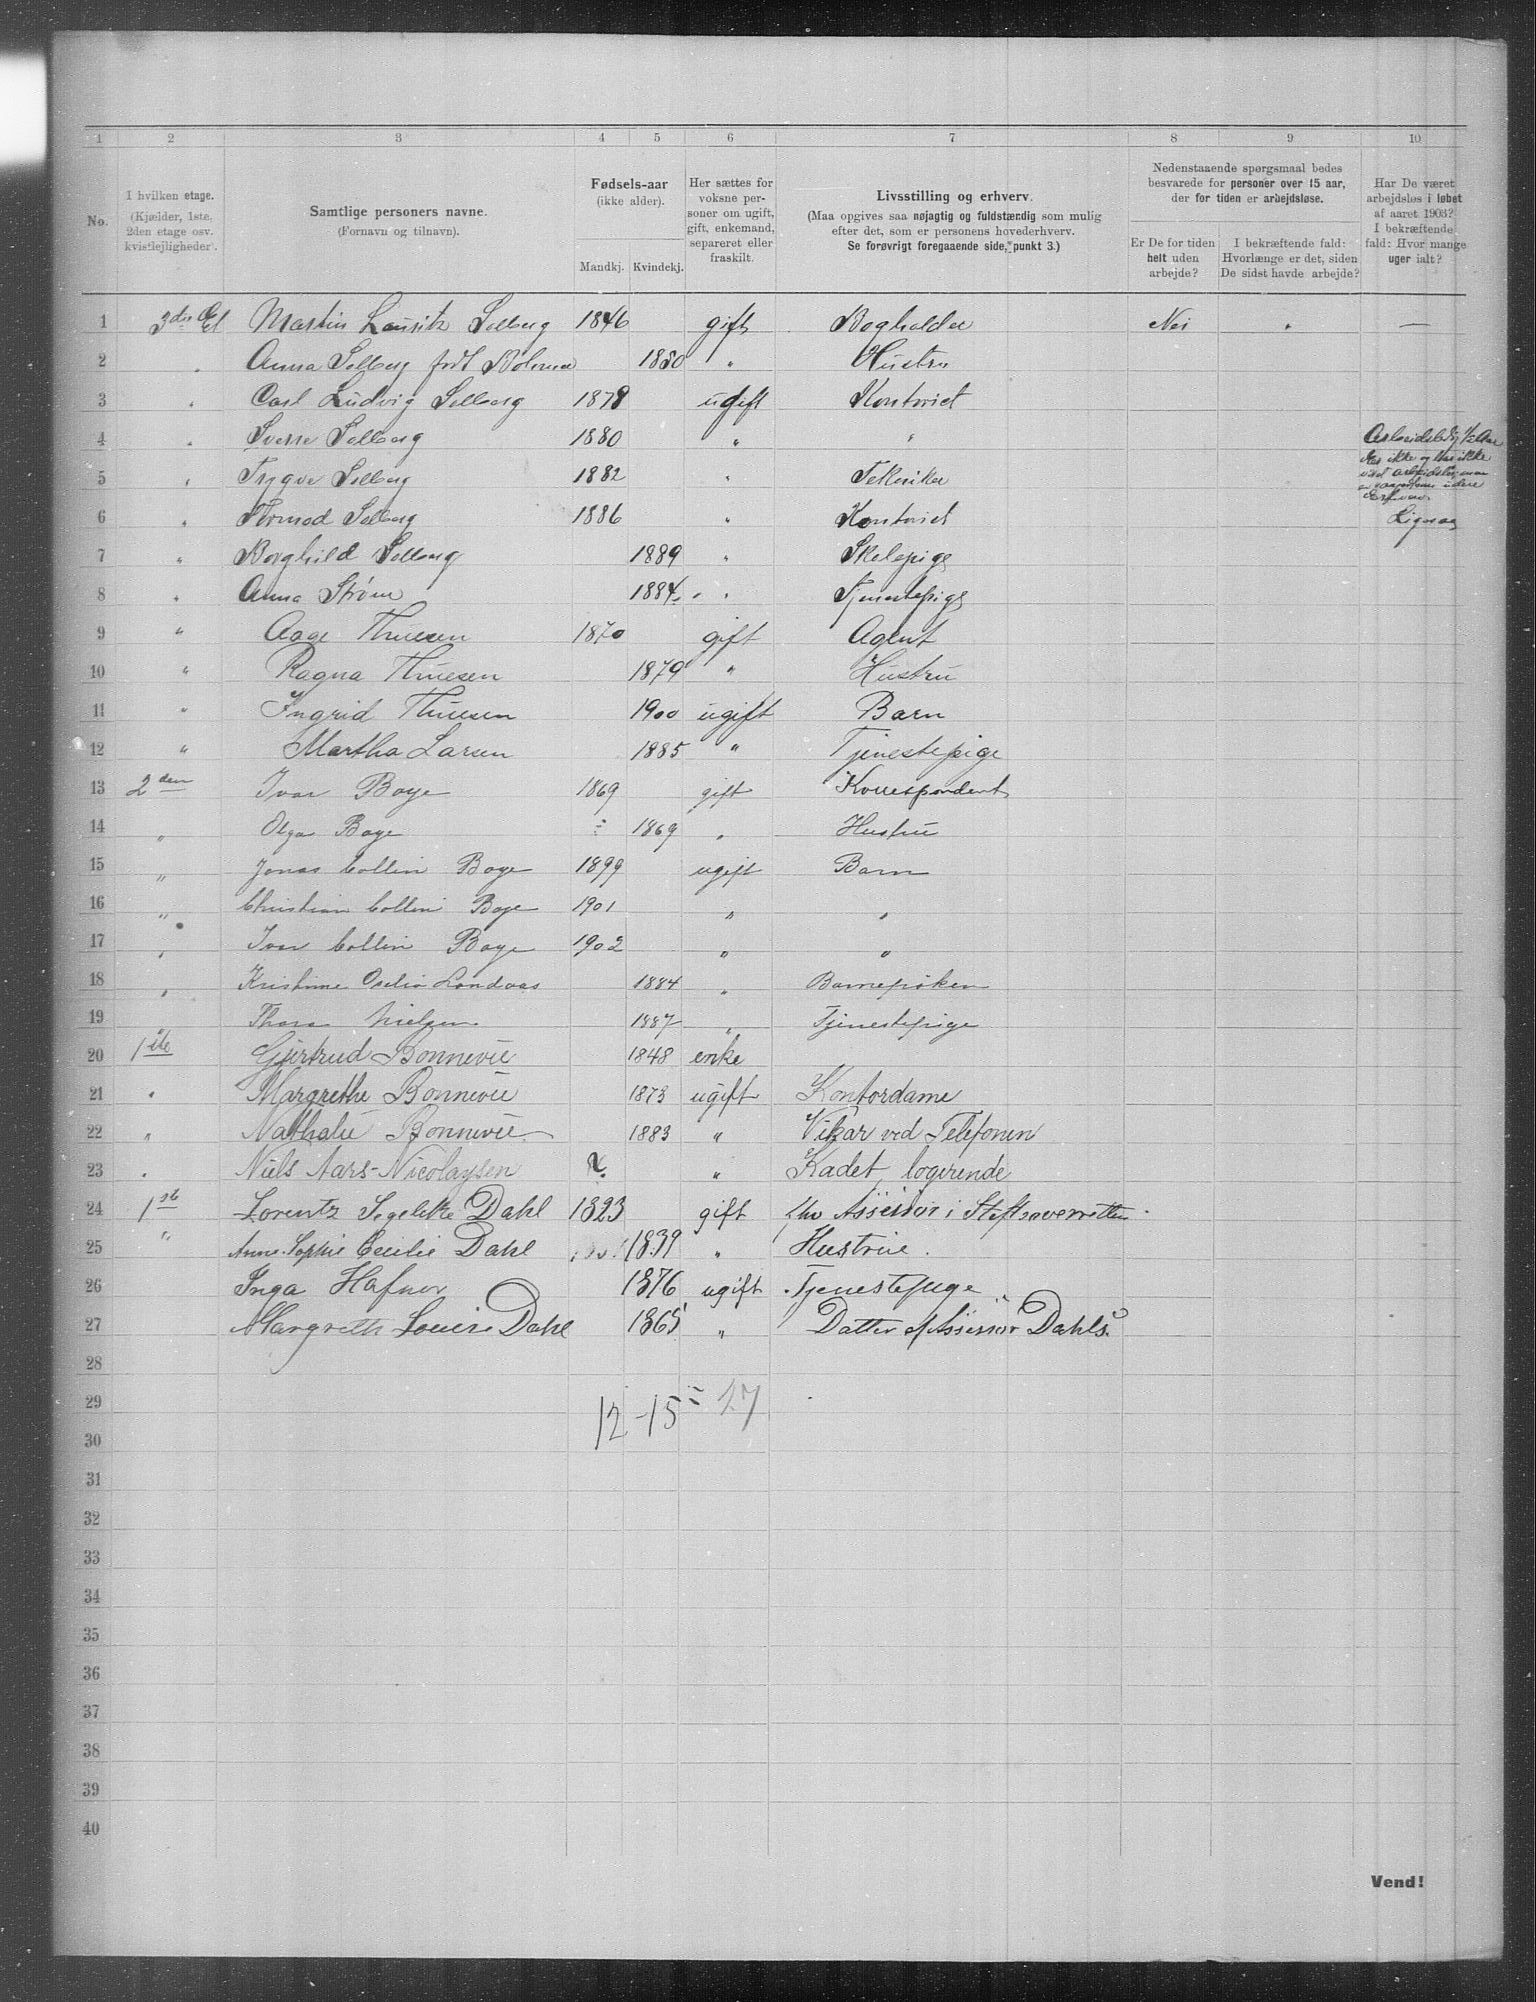 1 2 3 4 5 6 7 8 9 10
No.
I hvilken etage.
(Kjælder, 1ste,
2den etage osv.
kvistlejligheder).
Samtlige personers navne.
(Fornavn og tilnavn).
Fødsels-aar
(ikke alder).
Mandkj. Kvindekj.
Her sættes for
voksne per-
soner om ugift,
gift, enkemand,
separeret eller
fraskilt.
Livsstilling og erhverv.
(Maa opgives saa nøjagtig og fuldstændig som mulig
efter det, som er personens hovederhverv.
Se forøvrigt foregaaende side, punkt 3.)
Nedenstaaende spørgsmaal bedes
besvarede for personer over 15 aar,
der for tiden er arbejdsløse.
Er De for tiden
helt uden
arbejde?
I bekræftende fald:
Hvorlænge er det, siden
De sidst havde arbejde?
Har De været
arbejdsløs i løbet
af aaret 1903?
I bekræftende
fald: Hvor mange
uger ialt?
1 3die Et Martin Solberg 1846 gift Bogholder Nei " —
2 " Anna Solberg født 1850 " Hustru
3 " Carl Ludvig Solberg 1878 ugift Kontorist
4 " Sverre Solberg 1880 " "
5 " Trygve Solberg 1882 " Tekniker
6 " Tormod Solberg 1886 " Kontorist
7 " Borghild Solberg 1889 " Skolepige
8 " Anna Strøm 1884 " Tjenestepige
9 " Aage Thuesen 1870 gift Agent
10 " Ragna Thuesen 1879 " Hustru
11 " Ingrid Thuesen 1900 ugift Barn
12 " Martha Larsen 1885 " Tjenestepige
13 2den Ivar Boye 1869 gift Korrespondent
14 " Olga Boye 1869 " Hustru
15 " Jonas Collin Boye 1899 ugift Barn
16 " Christian Collin Boye 1901 " "
17 " Ivar Collin Boye 1902 " "
18 " Kristinne Oselia Landaas 1884 " Barnepiken
19 Thora Nielsen 1887 " Tjenestepige
20 1ste Gjertrud Bonnevie 1848 enke
21 " Margrethe Bonnevie 1873 ugift Kontordame
22 " Nathalie Bonnevie 1883 " Vikar ved Telefonen
23 " Niels Aars-Nicolaysen " Kadet, logerende
24 1ste Lorentz Segelcke Dahl 1823 gift fhv Assessor i Stiftsoverretten
25 " Anne Sophie Cecilie Dahl 1839 " Hustrue.
26 Inga Hafnor 1876 ugift Tjenestepige
27 Margreth Louise Dahl 1865 " Datter af Assessor Dahls.
28
29 12-15 = 27
30
31
32
33
34
35
36
37
38
39
40
Vend!